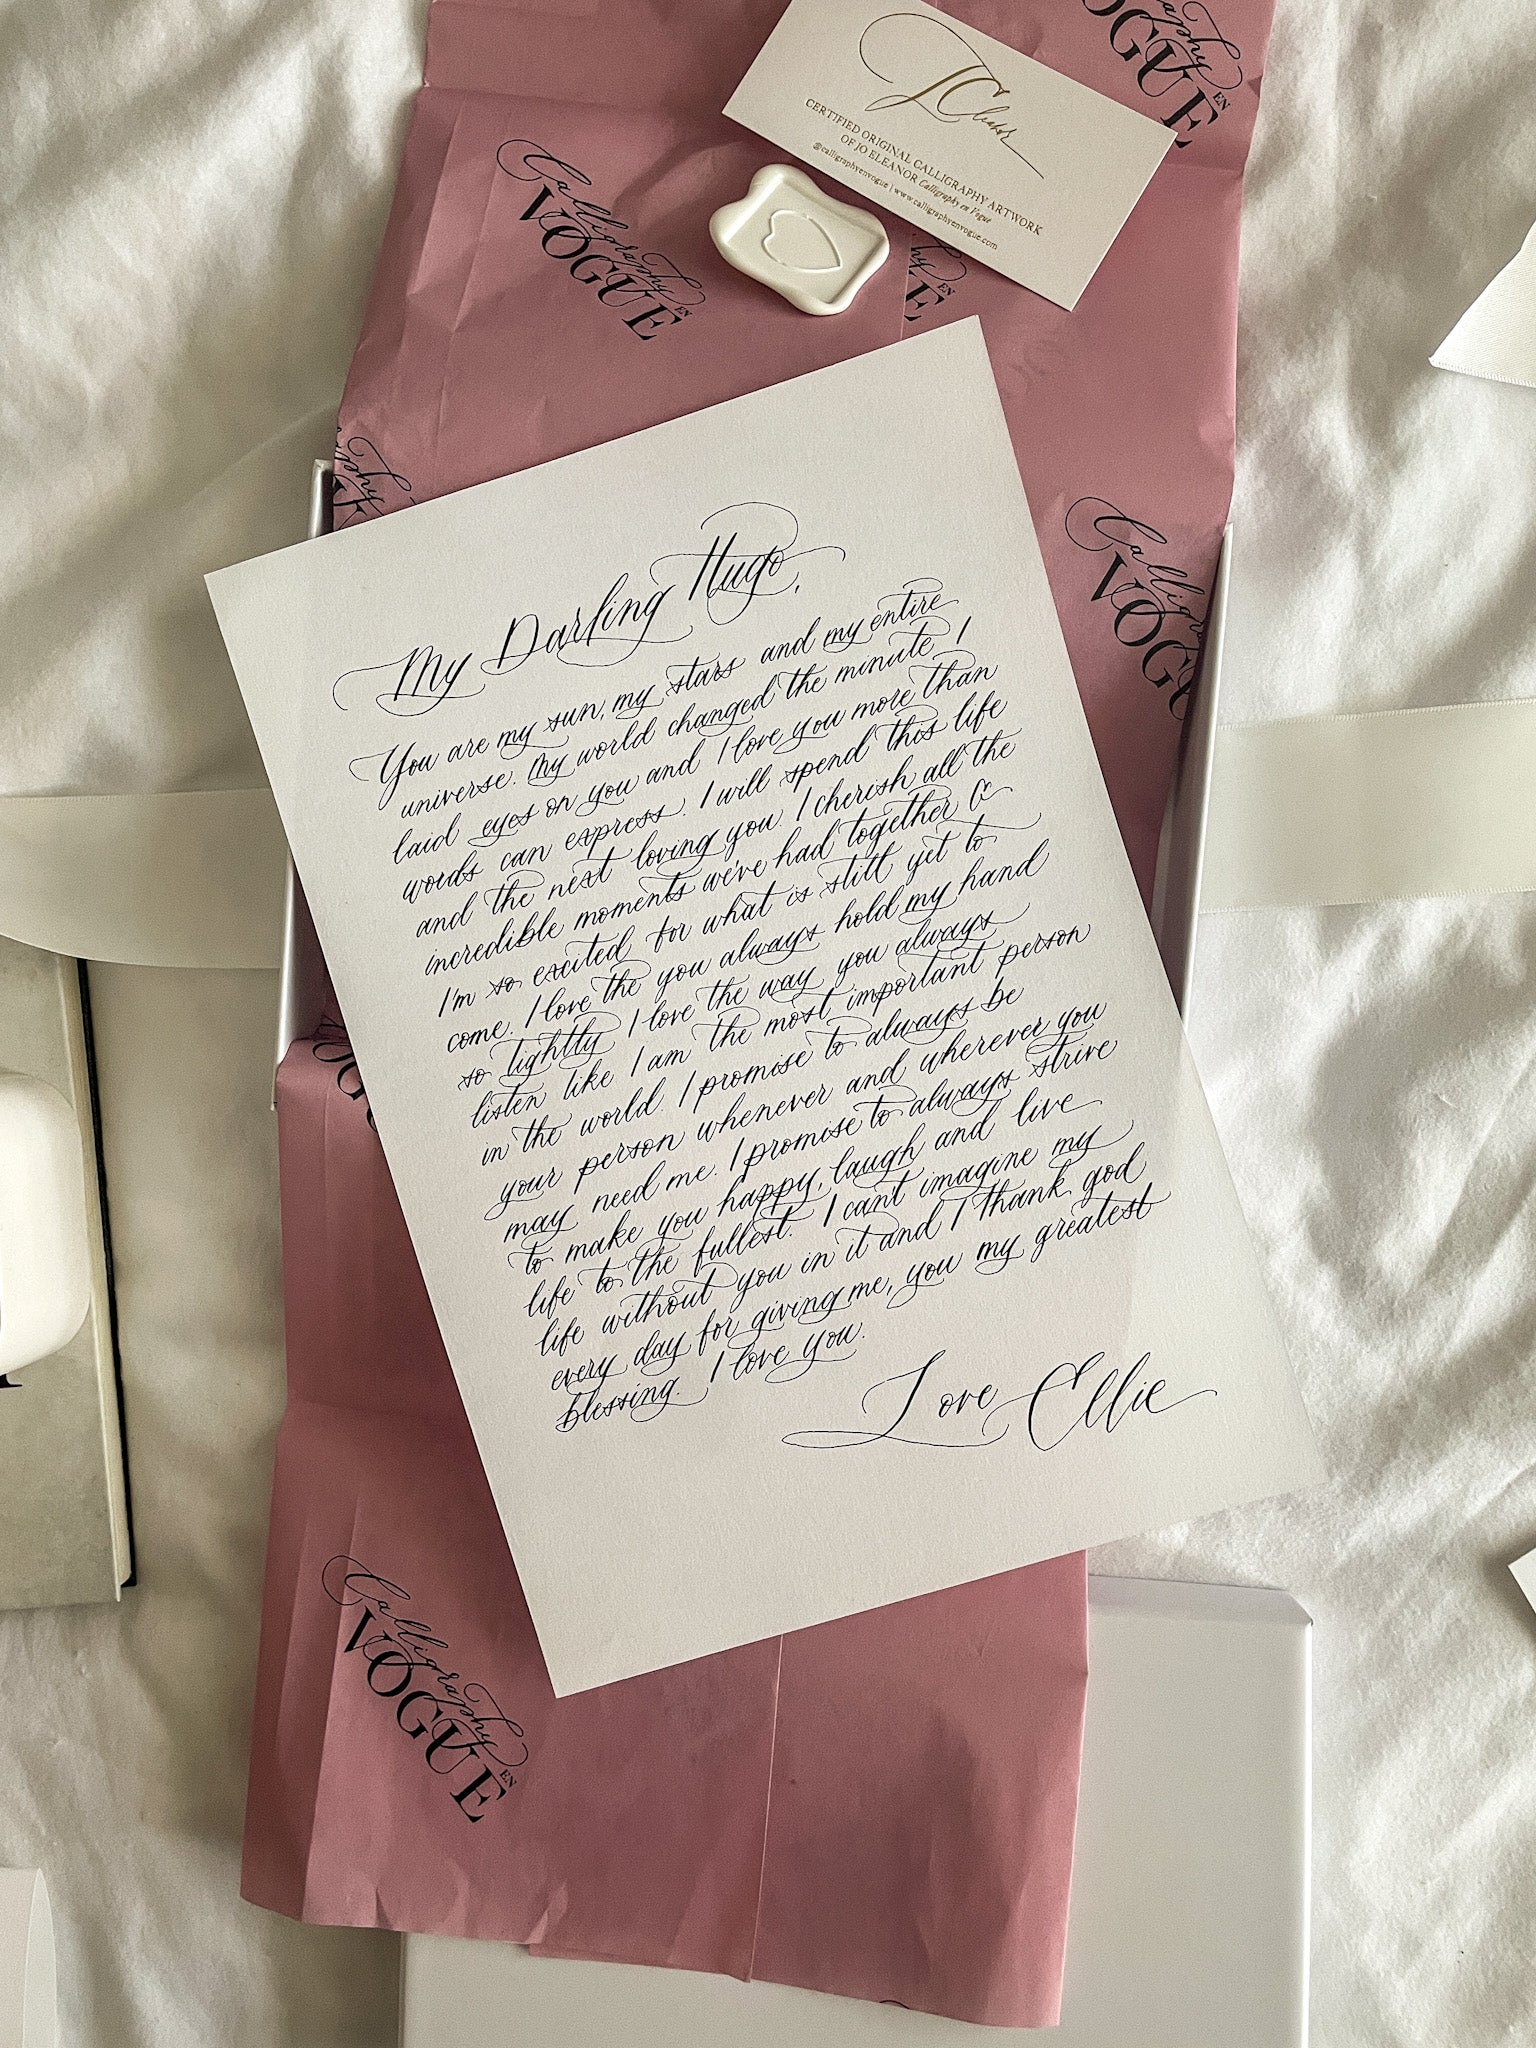 JC
CERTIFIED ORIGINAL CALLIGRAPHY ARTWORK
OF JO ELEANOR Calligraphy en Vogue
@calligraphyenvogue | www.calligraphyenvogue.com
Calligraphy
EN
VOGUE
Calligraphy
EN
VOGUE
My Darling Hugo,
You are my sun, my stars and my entire
universe. My world changed the minute I
laid eyes on you and I love you more than
words can express. I will spend this life
and the next loving you. I cherish all the
incredible moments we've had together &
I'm so excited for what is still yet to
come. I love the you always hold my hand
so tightly I love the way you always
listen like I am the most important person
in the world. I promise to always be
your person whenever and wherever you
may need me. I promise to always strive
to make you happy, laugh and live
life to the fullest. I can't imagine my
life without you in it and I thank god
every day for giving me, you my greatest
blessing. I love you.
Love Ellie
Calligraphy
VOGU
Calligraphy
EN
VOGUE